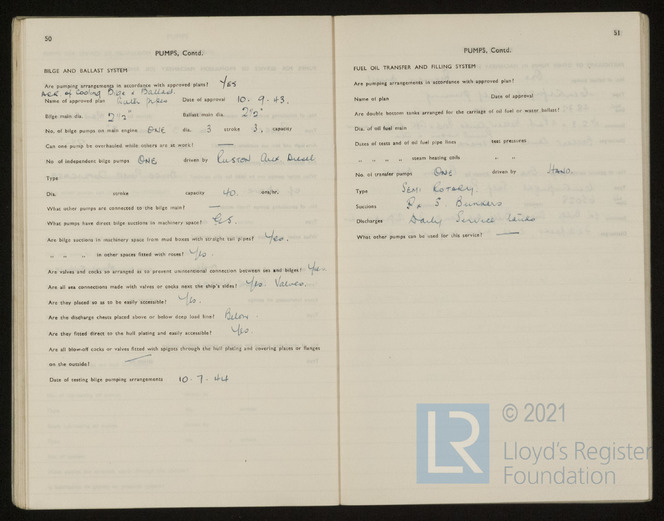 50
PUMPS, Contd.
BILGE AND BALLAST SYSTEM
Are pumping arrangements in accordance with approved plans? Yes
of Cooling Bilge & Ballast.
Name of approved plan Date of approval 10. 9. 43.
Bilge main dia. 2½" Ballast main dia. 2½"
No. of bilge pumps on main engine ONE dia. 3 stroke 3, capacity
Can one pump be overhauled while others are at work? —
No. of independent bilge pumps ONE driven by Ruston Aux. Diesel
Type
Dia. stroke capacity 40. tons/hr.
What other pumps are connected to the bilge main? —
What pumps have direct bilge suctions in machinery space? G.S.
Are bilge suctions in machinery space from mud boxes with straight tail pipes? Yes.
" " " in other spaces fitted with roses? Yes.
Are valves and cocks so arranged as to prevent unintentional connection between sea and bilges? Yes
Are all sea connections made with valves or cocks next the ship's sides? Yes. Valves.
Are they placed so as to be easily accessible? Yes.
Are the discharge chests placed above or below deep load line? Below.
Are they fitted direct to the hull plating and easily accessible? Yes.
Are all blow-off cocks or valves fitted with spigots through the hull plating and covering plates or flanges
on the outside? —
Date of testing bilge pumping arrangements 10. 7. 44
51
PUMPS, Contd.
FUEL OIL TRANSFER AND FILLING SYSTEM
Are pumping arrangements in accordance with approved plan?
Name of plan Date of approval
Are double bottom tanks arranged for the carriage of oil fuel or water ballast?
Dia. of oil fuel main
Dates of tests and of oil fuel pipe lines test pressures
" " " " steam heating coils " "
No. of transfer pumps ONE driven by HAND.
Type SEMI ROTARY.
Suctions P & S Bunkers
Discharges Daily Service
What other pumps can be used for this service? —
LR
© 2021
Lloyd's Register
Foundation